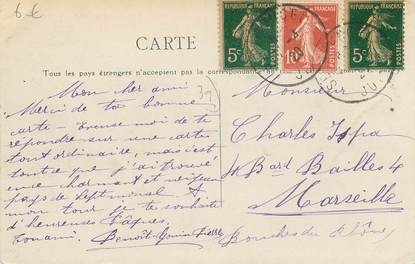 6 €
REPUBLIQUE FRANÇAISE
5c
POSTES
REPUBLIQUE FRANÇAISE
10c
POSTES
REPUBLIQUE FRANÇAISE
5c
POSTES
CARTE
Tous les pays étrangers n'acceptent pas la correspondance
Mon cher ami
Merci de ta bonne
carte - Excuse moi de te
répondre sur une carte
tout ordinaire, mais c'est
tout ce que j'ai trouvé
en ce charmant et
pays de Septèmes
mon tour je te souhaite
d'heureuses Pâques.
Ton ami. Benoît
Monsieur
Charles
4 Bard Bailles 4
Marseille
Bouches du Rhône